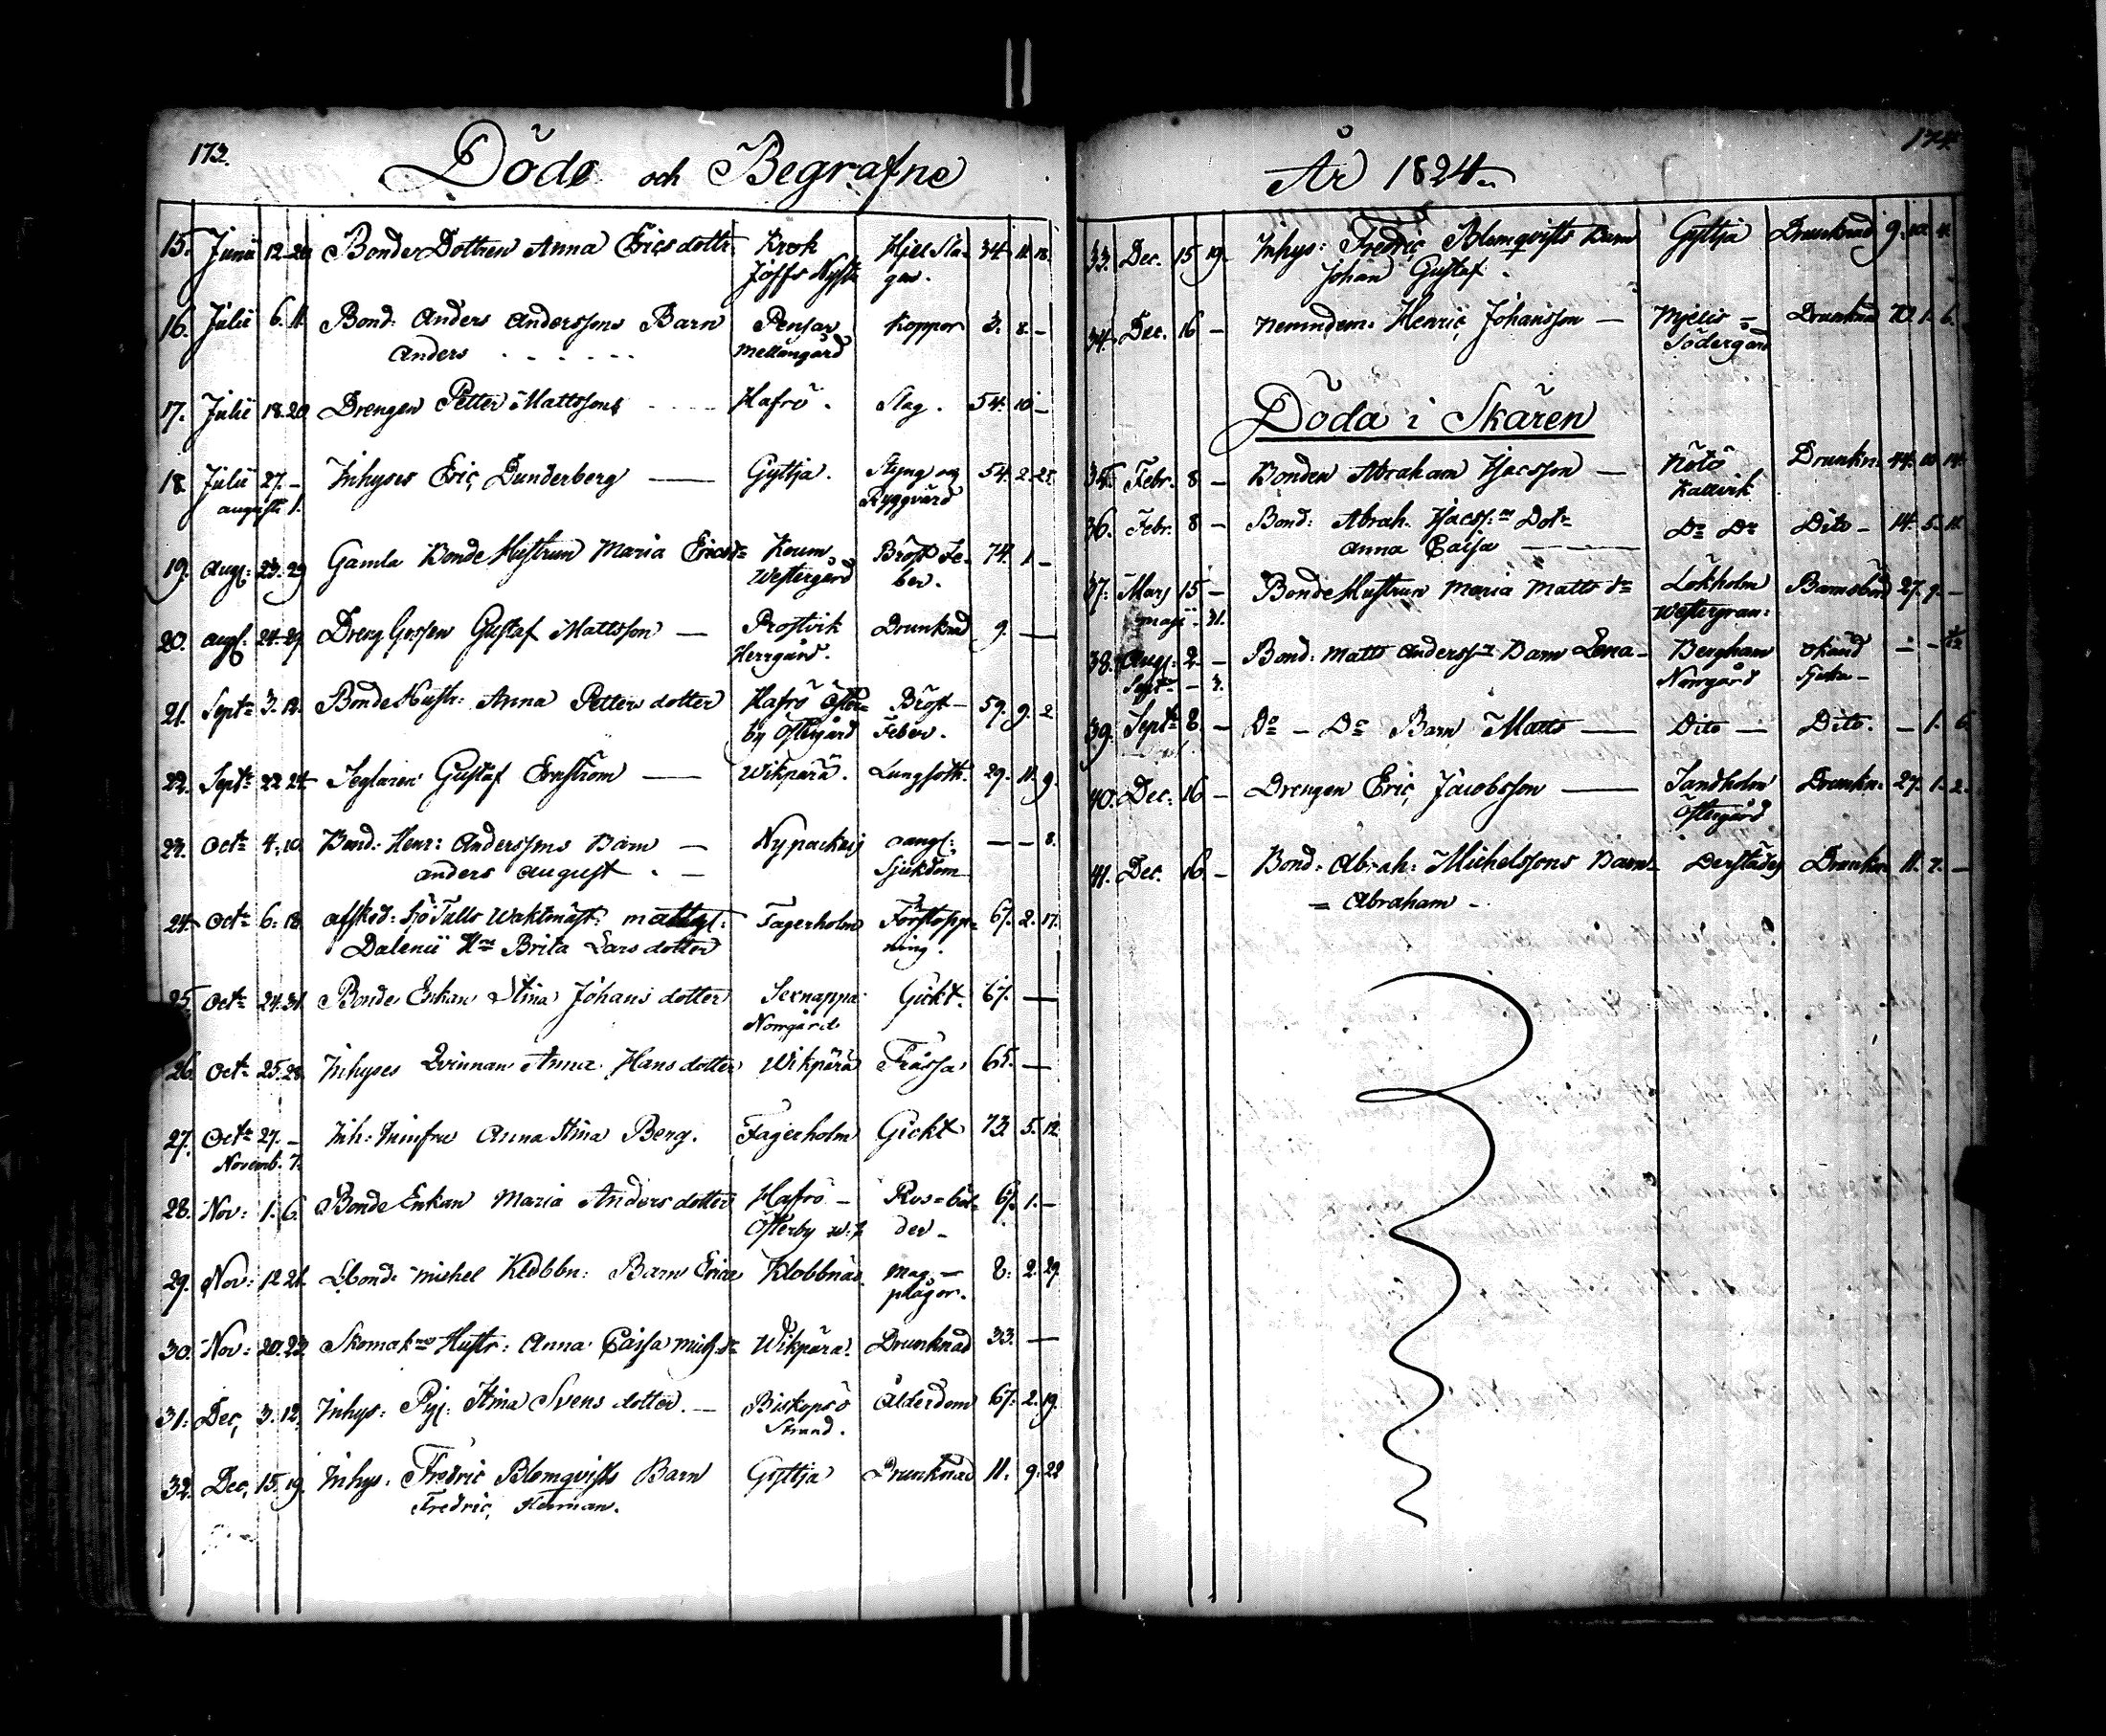 173.
Döde och Begrafne
15. Junii 12. 20 Bonde Dottren Anna Ericsdottr. Krok Hjel Sla- 34. 11. 18.
Joffs Nyste gen.
16. Julii 6. 11. Bond: Anders Anderssons Barn Pensar Koppor 3. 8. -
Anders - - - - - - Mellangård
17. Julii 18. 20 Drengen Petter Mattsson - - - - Hafrö. Slag. 54. 10 -
18. Julii 27. - Inhyses Eric Dunderberg — Gyttja. Styng och 54. 2. 25.
augusti 1. Ryggvärk
19. Aug: 23. 29 Gamla Bonde Hustrun Maria Ericsdr Koum Bröst Fe- 74. 1 -
Westergård ber.
20. Aug: 24. 29 Dreng Gossen Gustaf Mattsson — Prostvik Drunknad 9. —
Herrgård.
21. Septr 3. 12. Bonde Hustr: Anna Petters dotter Hafrö Öster= Bröst- 59. 9. 2
by Östergård Feber.
22. Septr 22 24 Seglaren Gustaf Ernström — Wikperä. Lungsoth. 29. 11. 9.
23. Octr 4. 10. Bond. Henr: Anderssons Barn — Nypackaij oangf: — - 8.
Anders August . — Sjukdom
24. Octr 6. 18. Afsked: Sjö Tulls Waktmäst: Fagerholm Förstopp= 67. 2. 17.
Dalenii Hru Brita Lars dotter ning.
25. Octr 24. 31. Bonde Enkan Stina Johans dotter Sexnappa Gickt. 67. —
Norrgård
26. Octr 25. 28. Inhyses Qvinnan Anna Hans dotter Wikpärä Frässa 65. —
27. Octr 27. - Inh: Jumfru Anna Stina Berg. Fagerholm Gickt 73. 5. 12.
Novemb. 7.
28. Nov: 1. 6. Bonde Enkan Maria Anders dotter Hafrö - Ros=böl= 67. 1. -
Österby der -
29. Nov: 12 21. Bond: Michel Klobbn: Barn Erica Klobbnäs Mag - 8. 2. 29.
plågor.
30. Nov: 20. 23. Skomakrns Hustr: Anna Caisa Mich: dr Wikpärä. Drunknad 33. —
31. Dec, 3. 12. Inhys: Pig: Stina Svens dotter. — Biskopsö Ålderdom 67. 2. 19.
Strand.
32. Dec, 15. 19. Inhys: Fredric Blomqvists Barn Gyttja Drunknad 11. 9. 22
Fredric Herman.
174.
År 1824.
33. Dec. 15 19. Inhys: Fredric Blomqvists Barn Gyttja Drunknad 9. 10. 4.
Johan Gustaf.
34. Dec. 16 - Nemndem: Henric Johansson — Mielis = Drunknad 70. 1. 6.
Södergård
Döda i Skären
35. Febr. 8 - Bonden Abraham Isacsson — Nötö Drunkn: 44. 10. 14.
Kallvik
36. Febr. 8 - Bond: Abrah. Isacss:ns Dotr Do Do Dito - 14. 5. 11.
Anna Caisa — — —
37. Mars 15 - Bonde Hustrun Maria Matts dr Lökholm Barnsbörd 27. 9. -
Maji. 31. Westergran:
38. Aug: 2. - Bond: Matts Anderssns Barn Lena - Bergham okänd
Septr - 3. Norrgård Sjuka -
39. Septr 8. - Do - Do Barn Matts — Dito — Dito. - 1. 6.
40. Dec: 16 - Drengen Eric Jacobsson — Sandholm Drunkn. 27. 1. 2.
Östergård
41. Dec. 16 - Bond: Abrah: Michelssons Barn - Derstädes Drunkn: 11. 7. -
= Abraham -